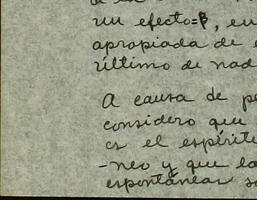 un efecto=β, en
apropiada de
último de nad
A causa de pe
considero que
es el espírite
-neo y que la
espontánear so